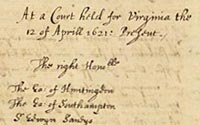 At a Court held for Virginia the
12 of Aprill 1621: Present.
The right Hono:ble
The Ea: of Huntingdon
The Ea: of Southampton
Sr Edwyn Sandys